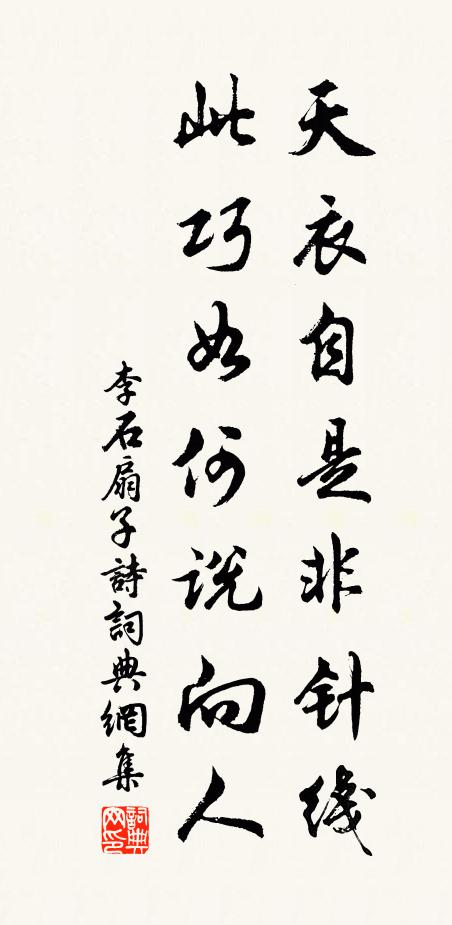 天衣自是非针线
此巧如何说向人
李石扇子詩詞典網集
詞典网印